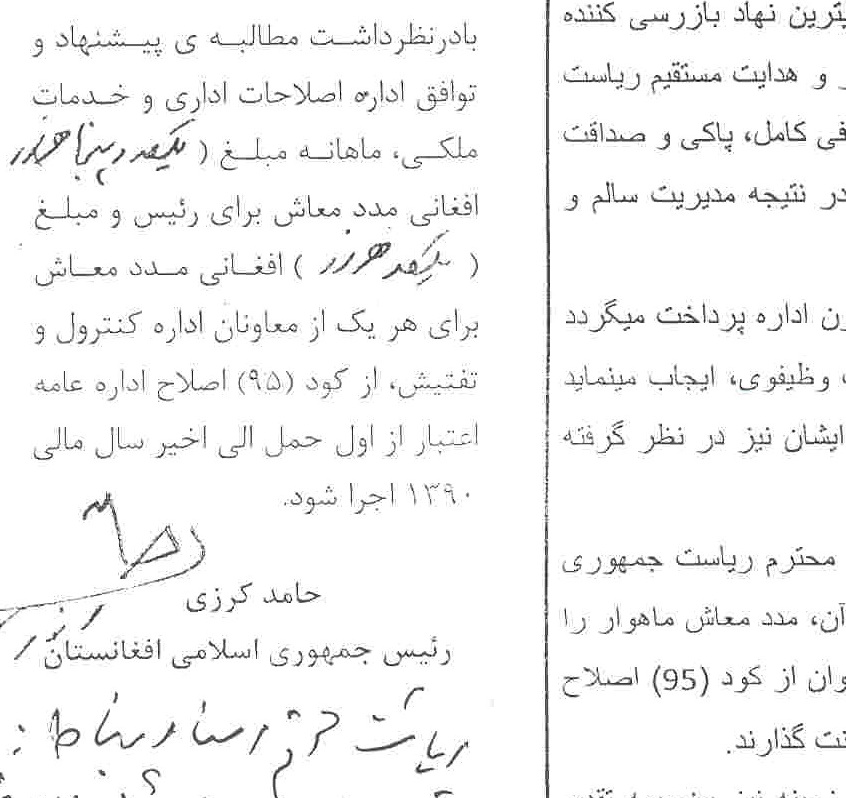 یترین نهاد بازرسی کننده
و هدایت مستقیم ریاست
فی کامل، پاکی و صداقت
در نتیجه مدیریت سالم و
اداره پرداخت میگردد
وظیفوی، ایجاب مینماید
ایشان نیز در نظر گرفته
محترم ریاست جمهوری
آن، مدد معاش ماهوار را
وان از کود (95) اصلاح
گذارند.
بادرنظرداشت مطالبه ی پیشنهاد و
توافق اداره اصلاحات اداری و خدمات
ملکی، ماهانه مبلغ ( یکصد و پنجا هزار
افغانی مدد معاش برای رئیس و مبلغ
( یکصد هزار ) افغانی مدد معاش
برای هر یک از معاونان اداره کنترول و
تفتیش، از کود (۹۵) اصلاح اداره عامه
اعتبار از اول حمل الی اخیر سال مالی
۱۳۹۰ اجرا شود.
حامد کرزی
رئیس جمهوری اسلامی افغانستان
ریاست